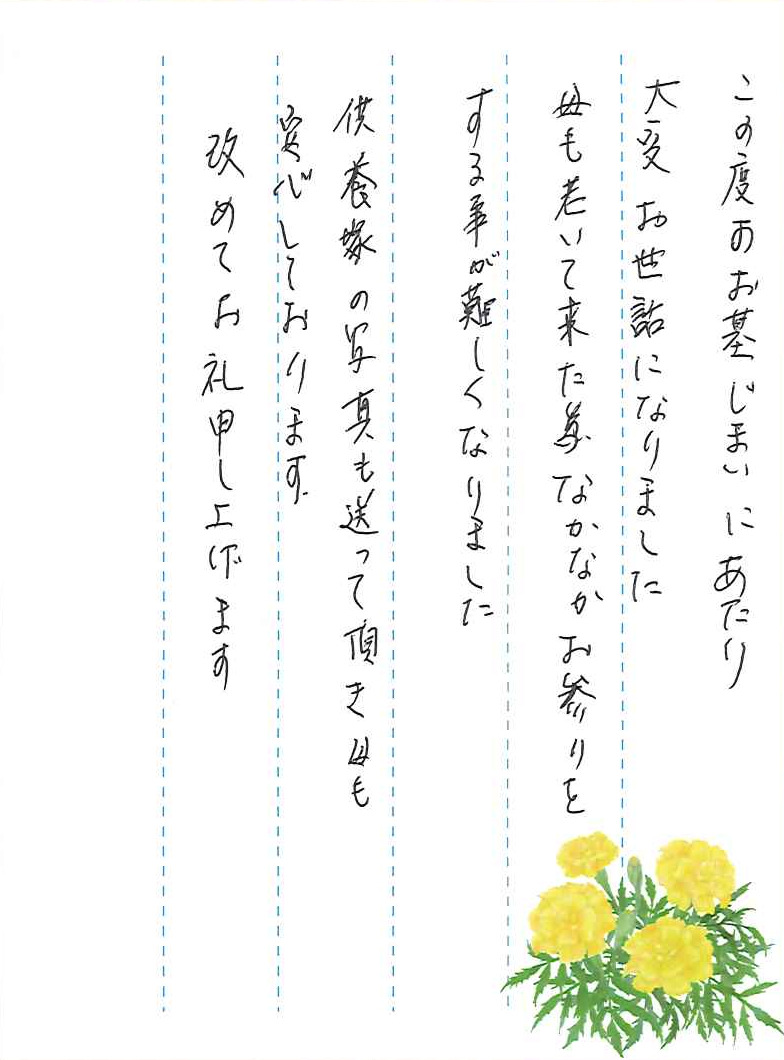 この度のお墓じまいにあたり
大変お世話になりました
母も老いて来た為なかなかお参りを
する事が難しくなりました
供養塚の写真も送って頂き母も
安心しております。
改めてお礼申し上げます